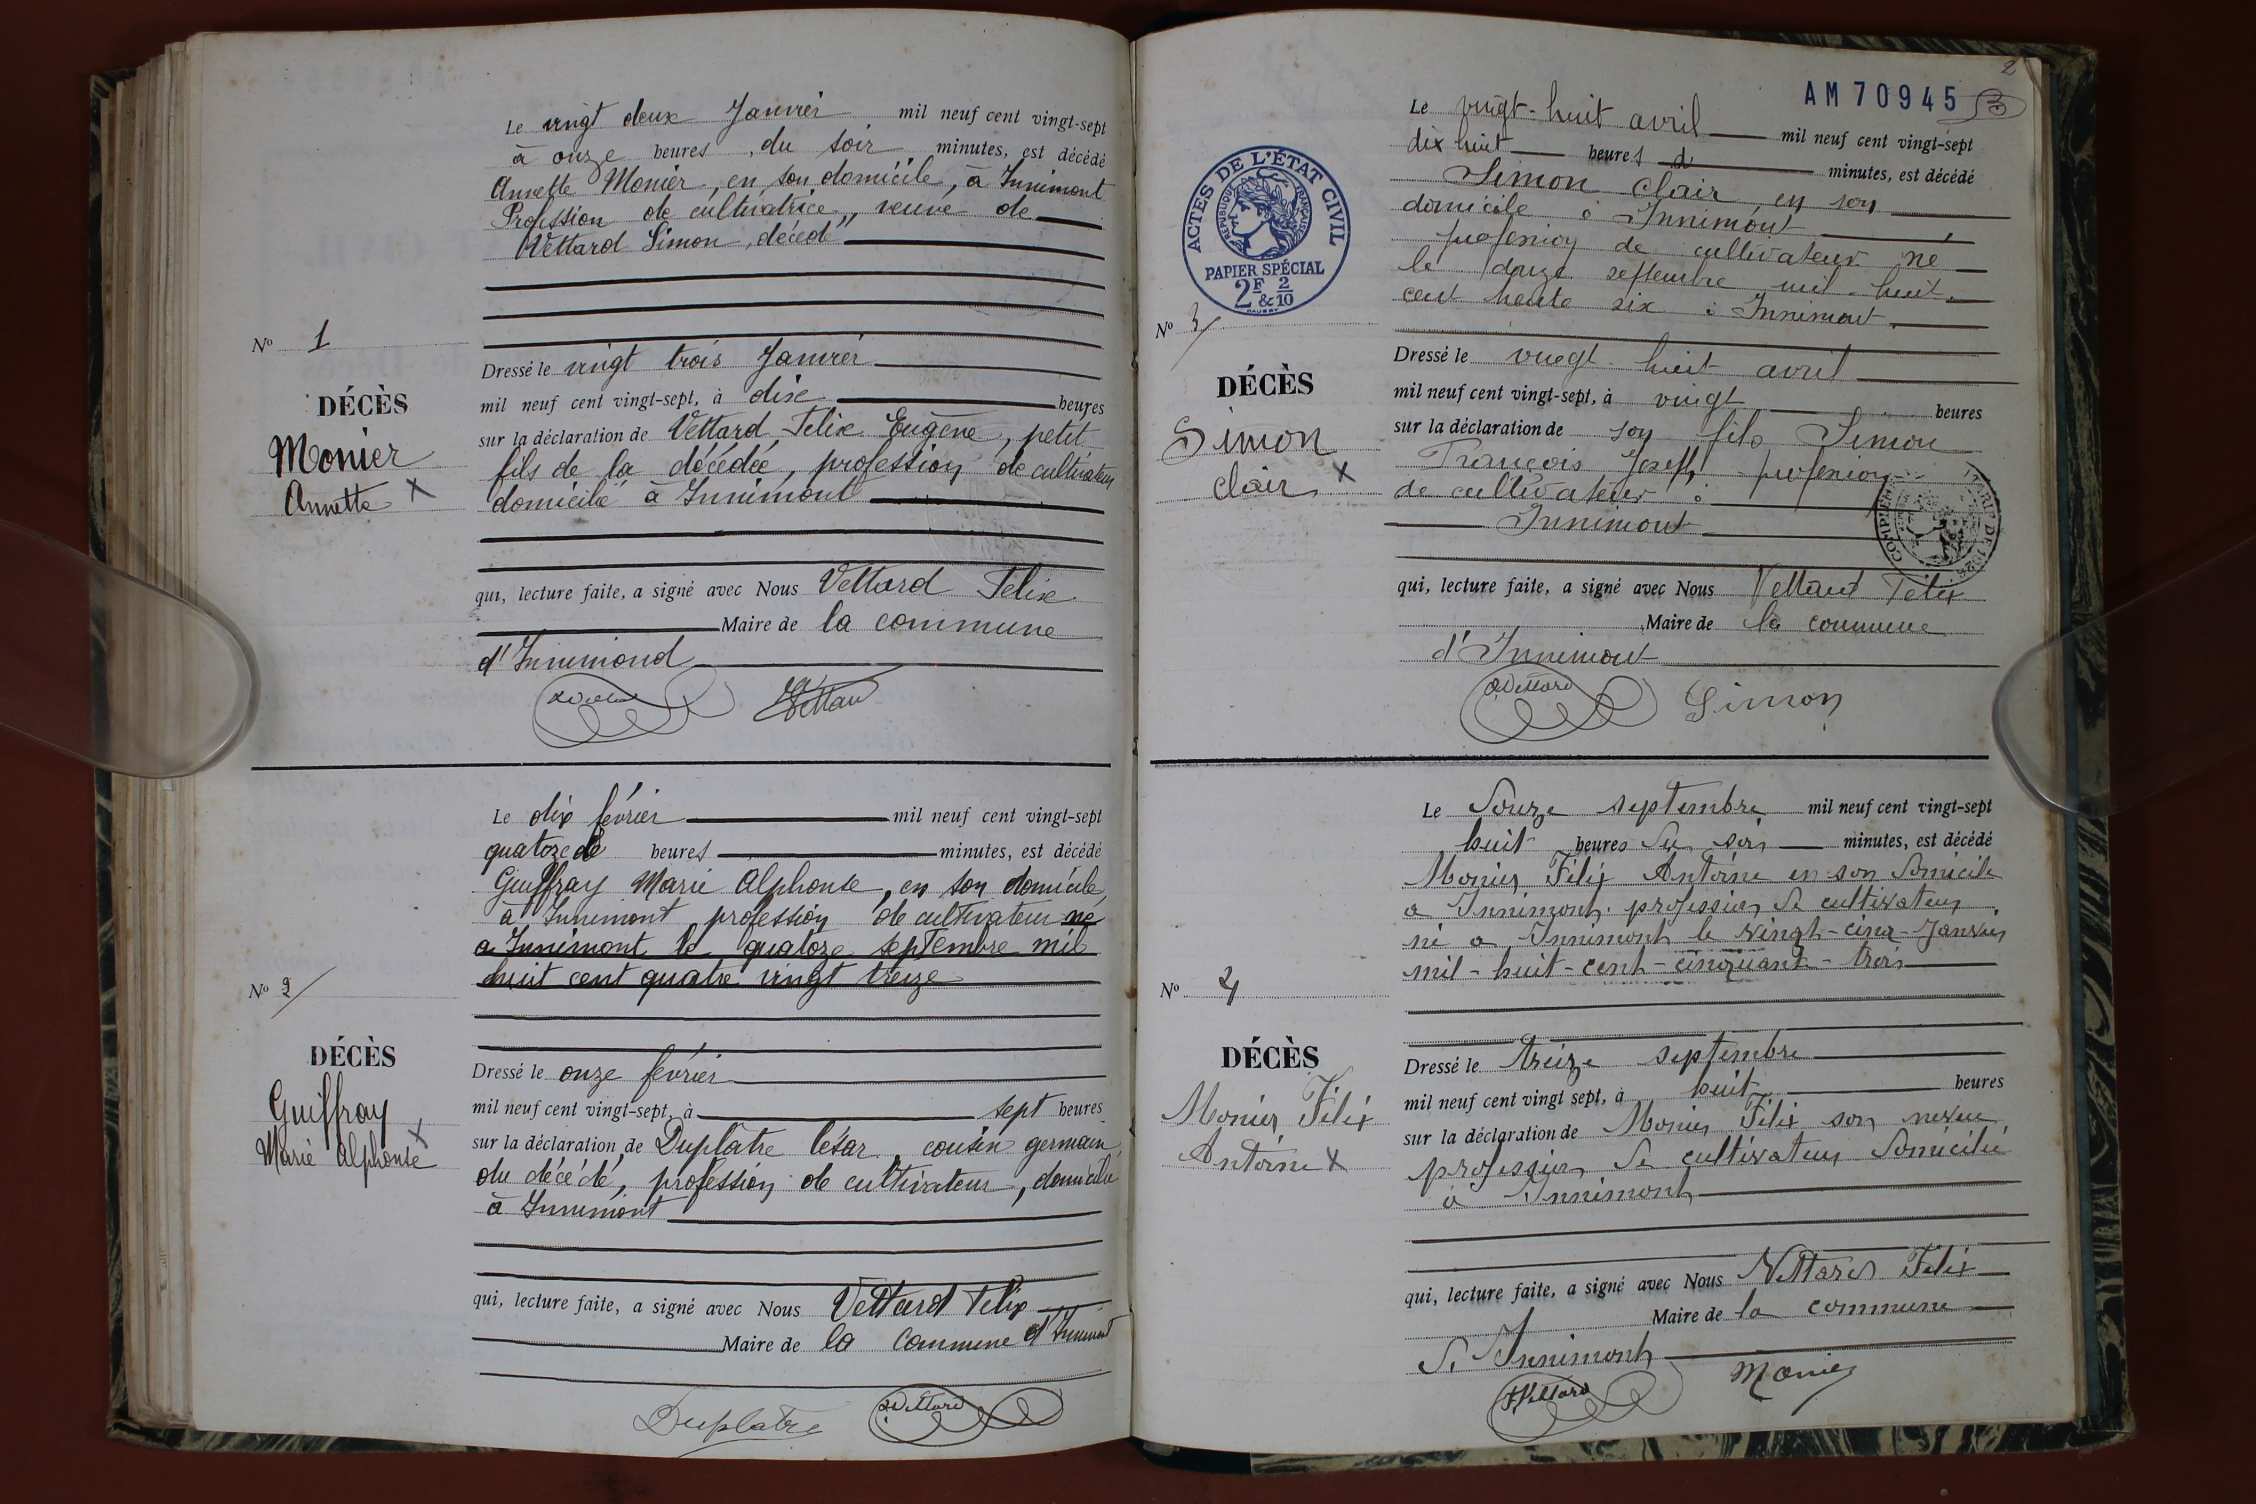 Le vingt deux Janvier mil neuf cent vingt-sept
à onze heures du soir minutes, est décédé
Annette Monier, en son domicile, à Innimont
Profession de cultivatrice, veuve de
Vettard Simon, décédé
No 1
DÉCÈS
Monier
Annette X
Dressé le vingt trois Janvier
mil neuf cent vingt-sept, à dix heures
sur la déclaration de Vettard Felix Eugène, petit
fils de la décédée, profession de cultivateur
domicilié à Innimont
qui, lecture faite, a signé avec Nous Vettard Felix
Maire de la commune
d'Innimond
Le dix février mil neuf cent vingt-sept
quatoze de heures minutes, est décédé
Guiffray Marie Alphonse, en son domicile
à Innimont profession de cultivateur né
a Innimont le quatoze septembre mil
huit cent quatre vingt treize
No 2
DÉCÈS
Guiffray
Marie Alphonse X
Dressé le onze février
mil neuf cent vingt-sept, à sept heures
sur la déclaration de Duplâtre César, cousin germain
du décédé, profession de cultivateur, domicilié
à Innimont
qui, lecture faite, a signé avec Nous Vettard Felix
Maire de la commune d'Innimont
Duplatre Vettard
2
AM 70945
3
ACTES DE L'ÉTAT CIVIL
RÉPUBLIQUE FRANÇAISE
PAPIER SPÉCIAL
2F & 2/10
Le vingt-huit avril mil neuf cent vingt-sept
dix huit heures d minutes, est décédé
Simon Clair, en son
domicile à Innimont
profession de cultivateur né
le douze septembre mil huit
cent trente six à Innimont
No 3
DÉCÈS
Simon
Clair X
Dressé le vingt huit avril
mil neuf cent vingt-sept, à vingt heures
sur la déclaration de son fils Simon
François Joseph profession
de cultivateur à
Innimont
qui, lecture faite, a signé avec Nous Vettard Felix
Maire de la commune
d'Innimont
Vettard Simon
Le Douze septembre mil neuf cent vingt-sept
huit heures du soir minutes, est décédé
Monier Félix Antoine en son domicile
a Innimont profession de cultivateur
né a Innimont le vingt-cinq Janvier
mil-huit-cent-cinquante-trois
No 4
DÉCÈS
Monier Félix
Antoine X
Dressé le treize septembre
mil neuf cent vingt sept, à huit heures
sur la déclaration de Monier Félix son neveu
profession de cultivateur domicilié
à Innimont
qui, lecture faite, a signé avec Nous Vettard Félix
Maire de la commune
d'Innimont
Vettard Monier